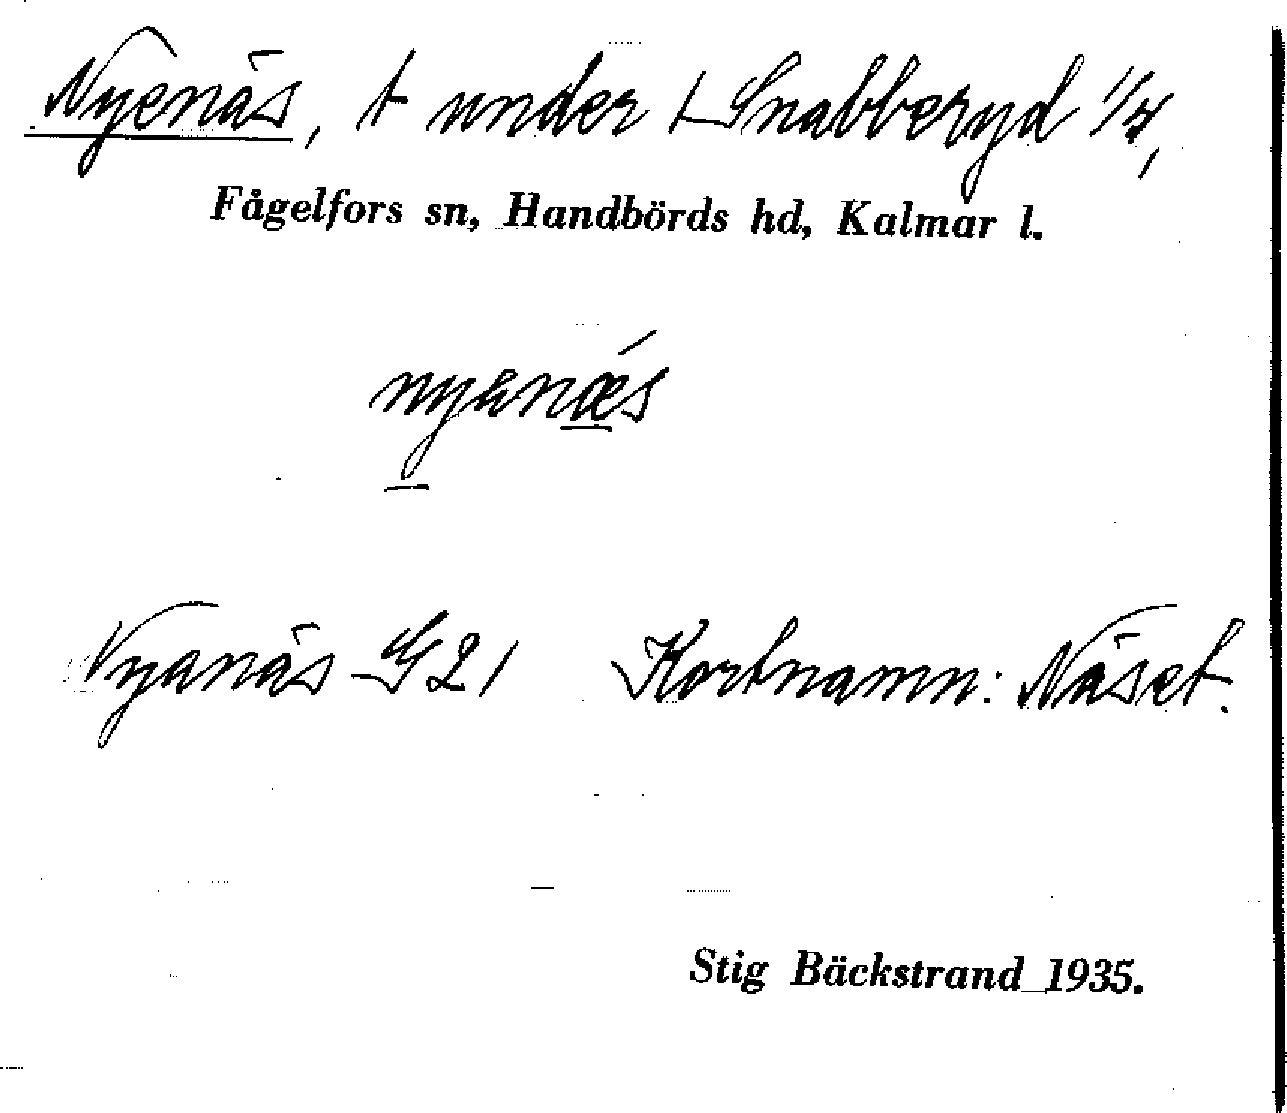 Nyenäs, t under Snabberyd 1/4,
Fågelfors sn, Handbörds hd, Kalmar l.
nyenæs
Nyanäs G21 Kortnamn: Näset.
Stig Bäckstrand 1935.